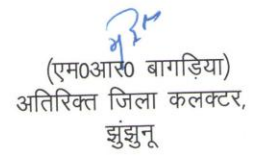 (एम0आर0 बागड़िया)
अतिरिक्त जिला कलक्टर,
झुंझुनू